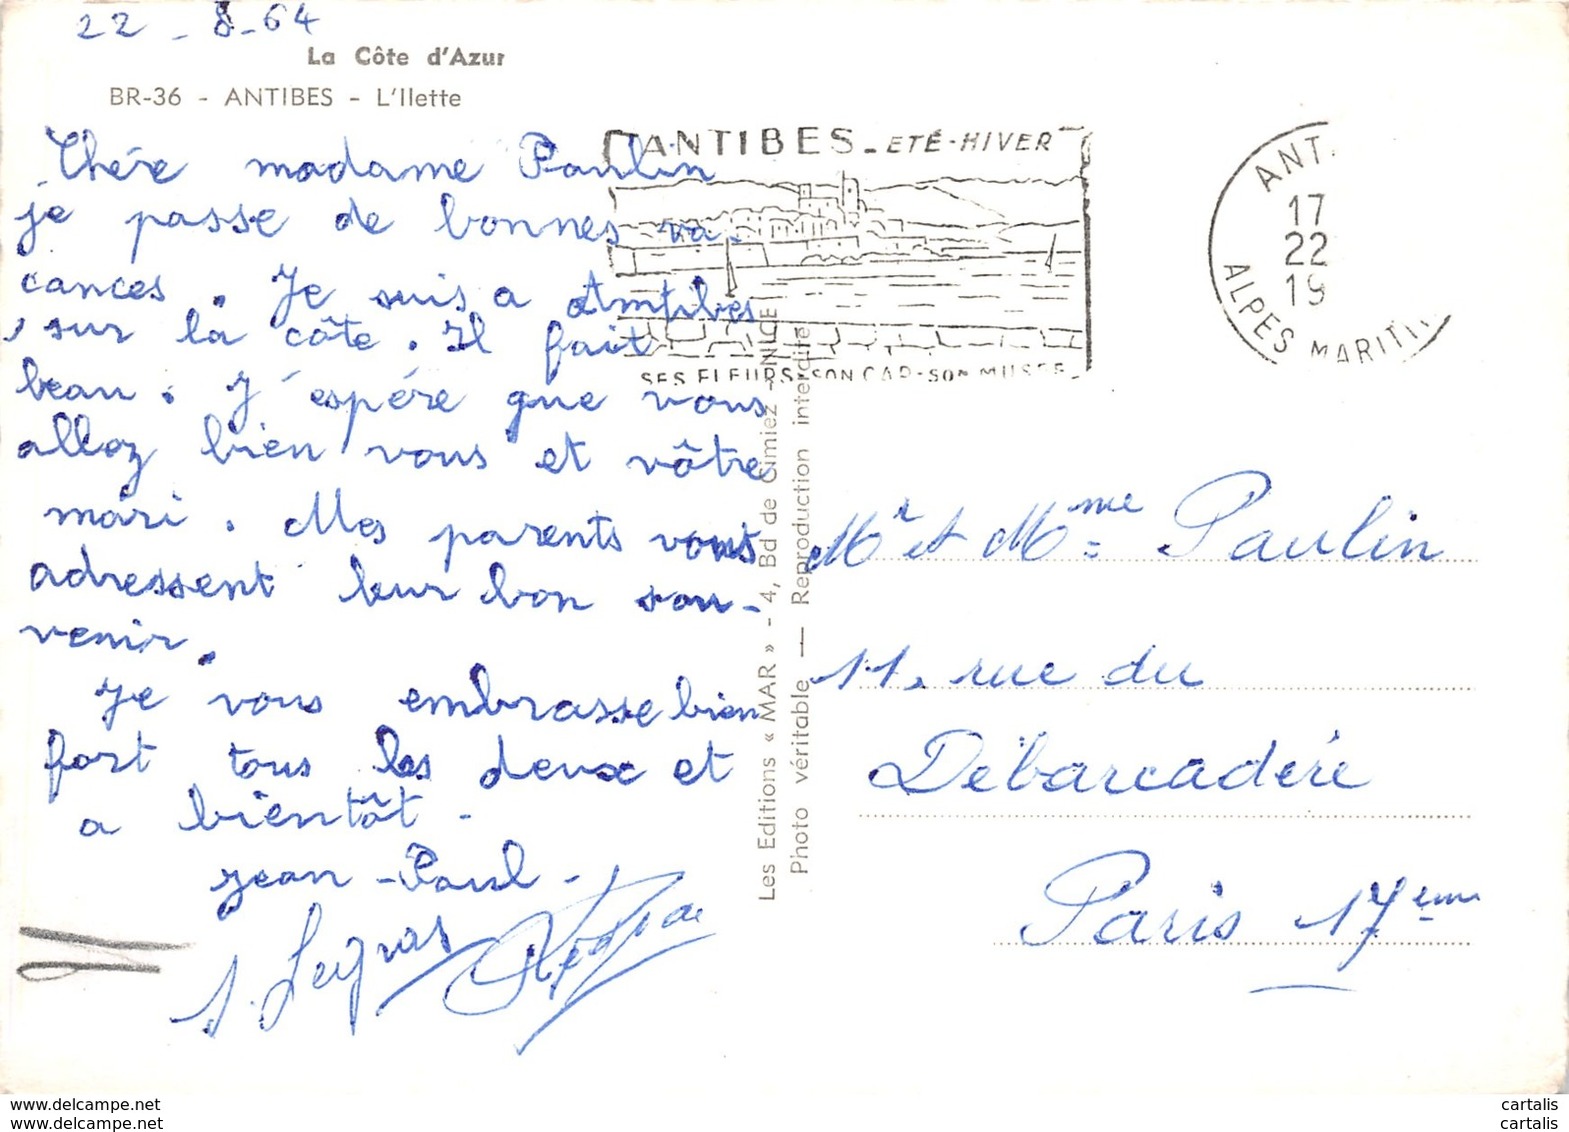 22 - 8-64
La Côte d'Azur
BR-36 - ANTIBES - L'Ilette
Chére madame Paulin
je passe de bonnes va-
cances. Je suis a Amtibes
sur la côte. Il fait
beau. J'espére que vous
allez bien vous et vôtre
mari. Mes parents vous
adressent leur bon sou-
venir.
Je vous embrasse bien
fort tous les deux et
a bientôt -
jean-Paul-
ANTIBES - ETÉ-HIVER
SES FLEURS-SON CAP-SON MUSEE
ANT
17
22
19
ALPES MARITI
Les Editions « MAR » - 4, Bd de Cimiez - NICE
Photo véritable — Reproduction interdite
Mr et Mme Paulin
11, rue du
Débarcadére
Paris 17ème
www.delcampe.net
cartalis
cartalis